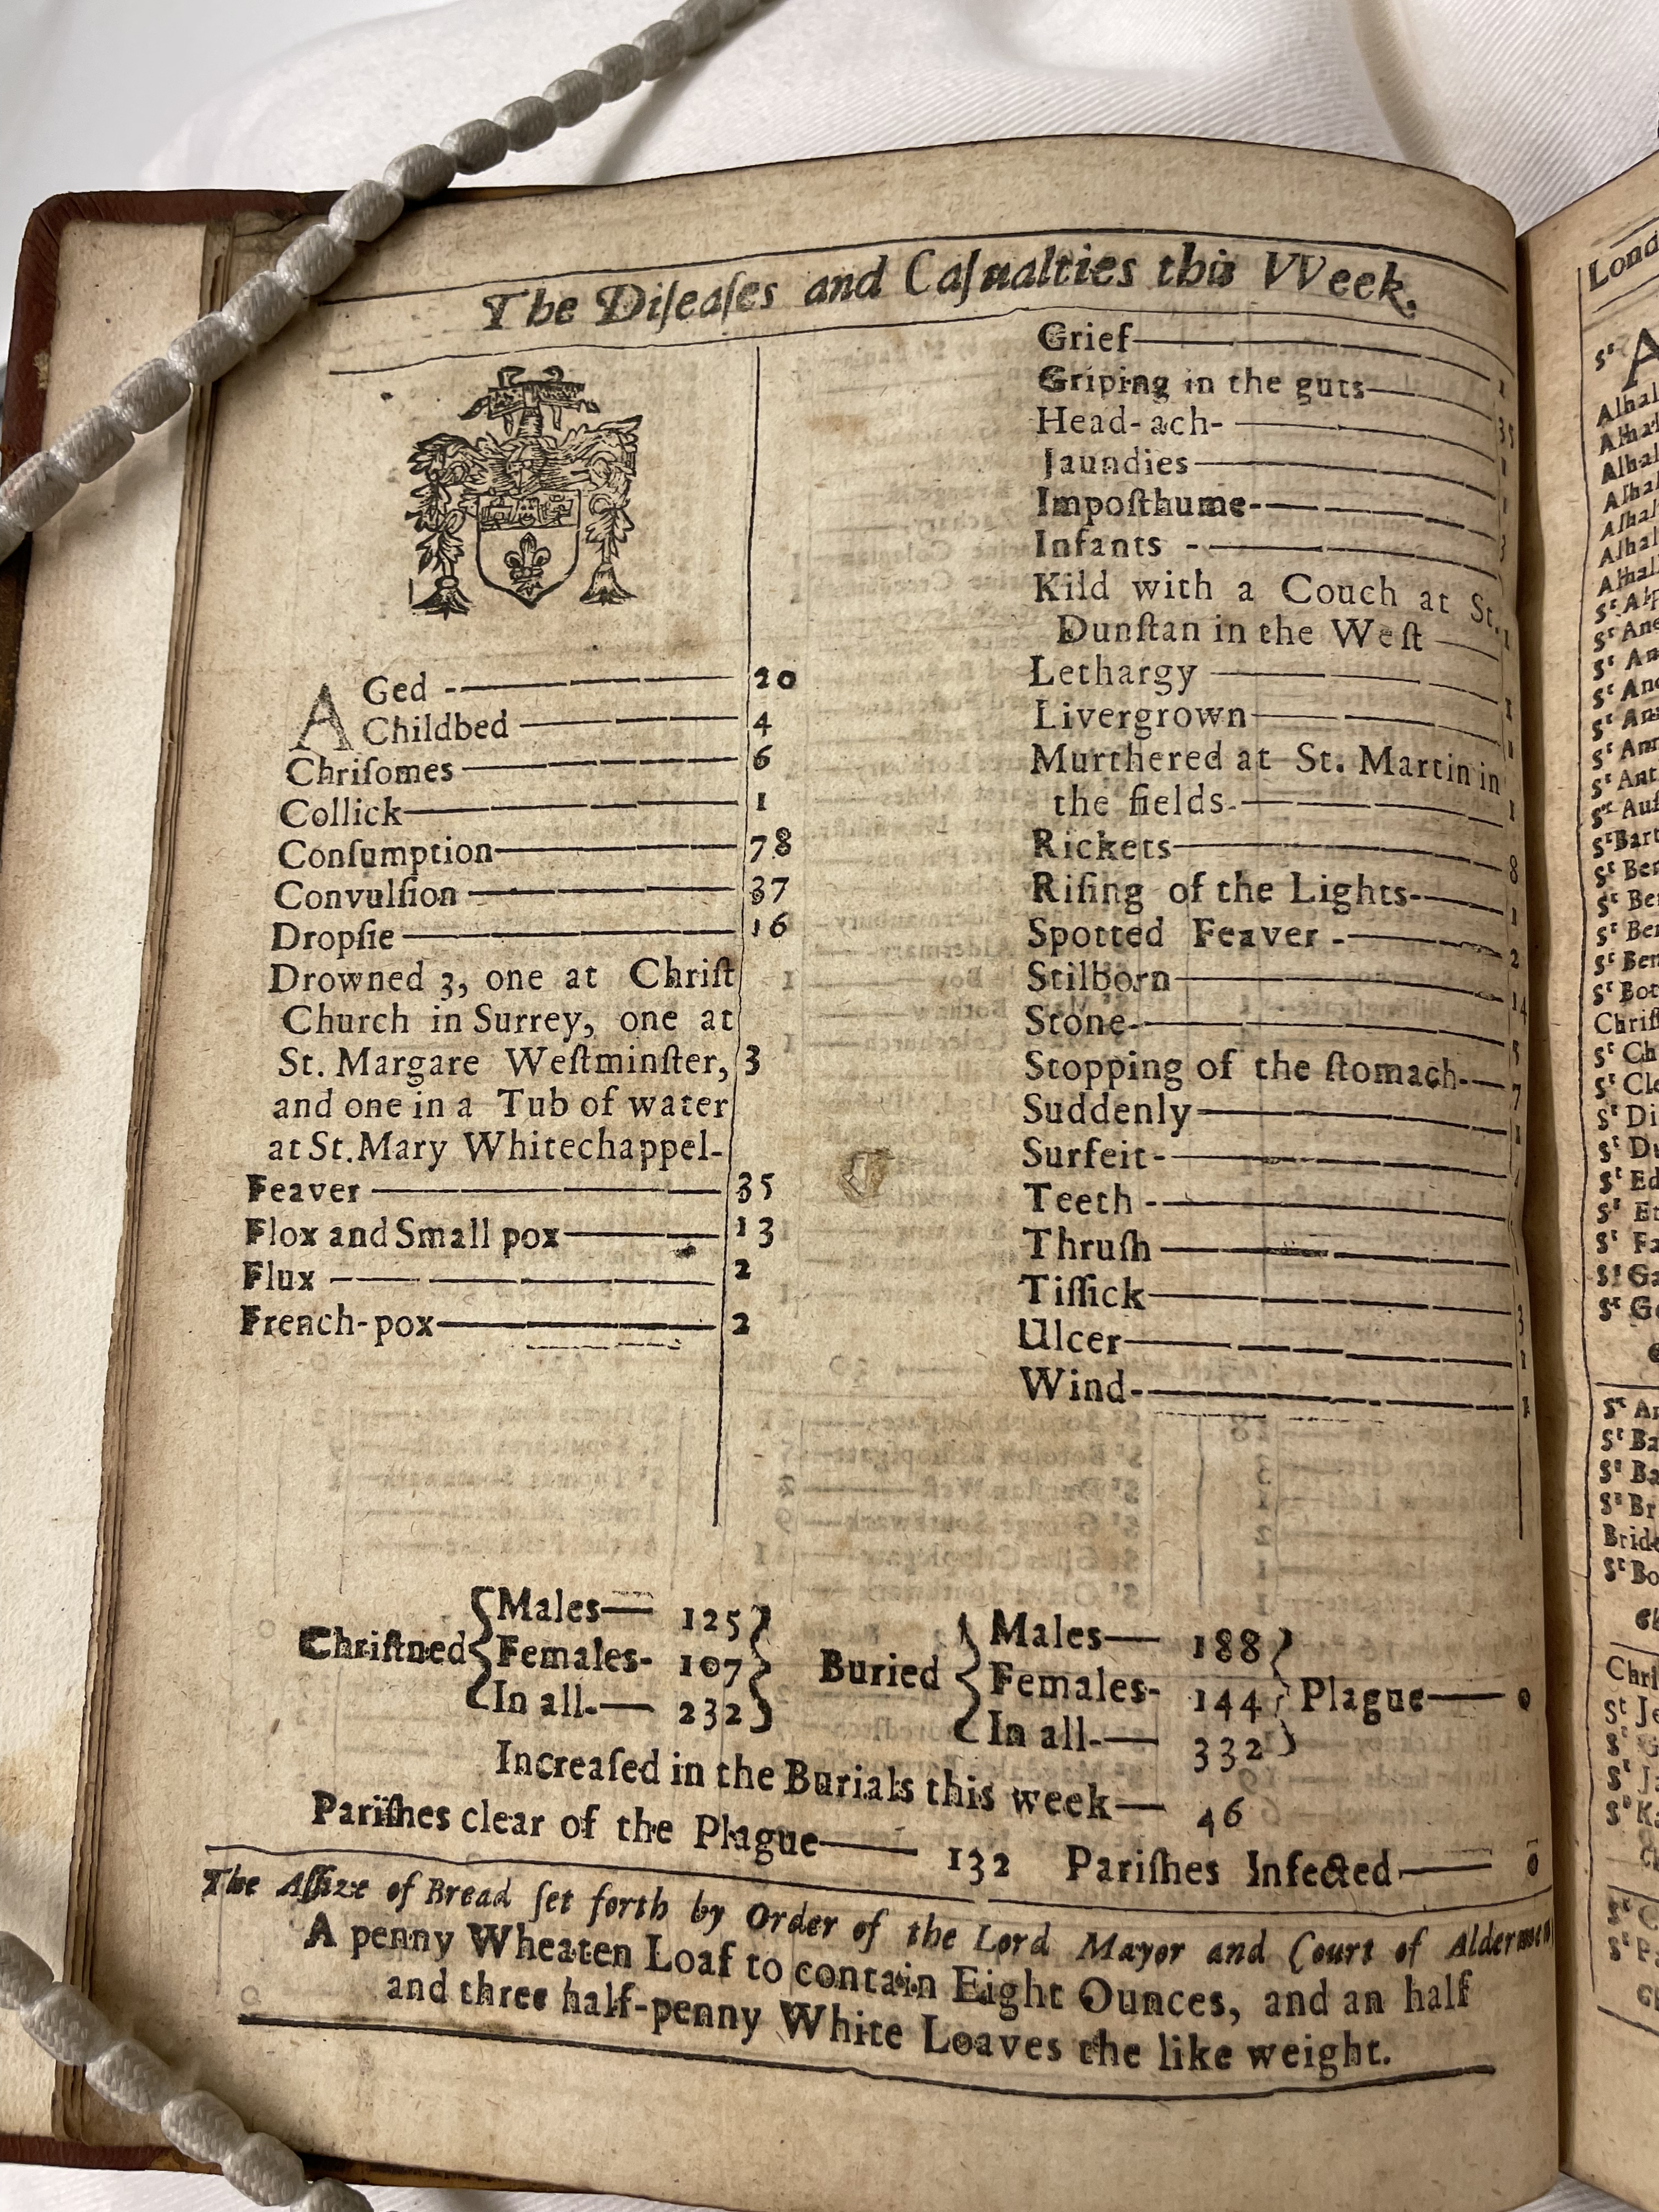 The Diſeaſes and Caſualties this VVeek.
AGed - 20
Childbed 4
Chriſomes 6
Collick 1
Conſumption 78
Convulſion 37
Dropſie 16
Drowned 3, one at Chriſt
Church in Surrey, one at
St. Margare Weſtminſter, 3
and one in a Tub of water
at St. Mary Whitechappel-
Feaver 35
Flox and Small pox 13
Flux 2
French-pox 2
Grief 1
Griping in the guts 35
Head-ach- 1
Jaundies 1
Impoſthume- 3
Infants -
Kild with a Couch at St.
Dunſtan in the Weſt 1
Lethargy 1
Livergrown 1
Murthered at St. Martin in
the fields- 1
Rickets 8
Riſing of the Lights- 1
Spotted Feaver - 2
Stilborn 14
Stone- 5
Stopping of the ſtomach- 7
Suddenly 1
Surfeit-
Teeth -
Thruſh
Tiſſick 3
Ulcer 1
Wind- 1
Chriſtned Males 125
Females- 107
In all- 232
Buried Males 188
Females- 144
In all- 332
Plague 0
Increaſed in the Burials this week 46
Pariſhes clear of the Plague 132 Pariſhes Infected 0
The Aſſize of Bread ſet forth by Order of the Lord Mayor and Court of Aldermen
A penny Wheaten Loaf to contain Eight Ounces, and an half
and three half-penny White Loaves the like weight.
Lond
Sᵗ A
Alhal
Alhal
Alhal
Alhal
Alhal
Alhal
Alhal
Sᵗ Alp